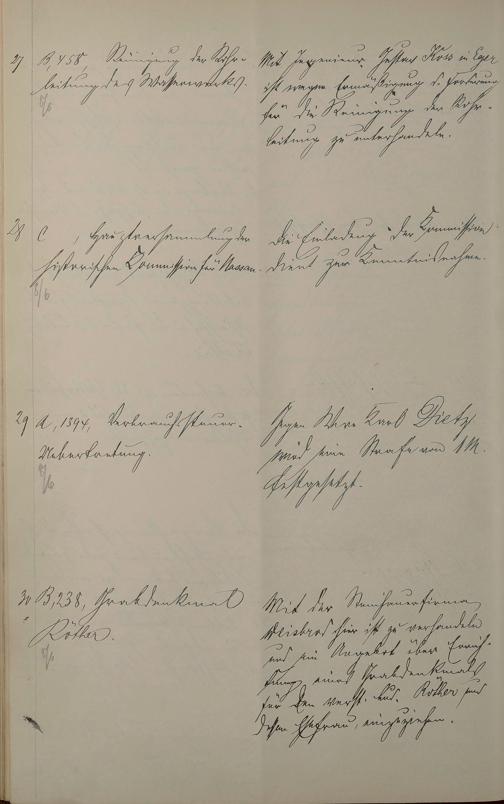 27
B, 458, Reinigung der Rohr-
leitung des Wasserwerks.
Mit Ingenieur Gustav Koss in Eger
ist wegen Ermäßigung d. Forderung
für die Reinigung der Rohr-
leitung zu unterhandeln.
28
C , Hauptversammlung der
historischen Kommission für Nassau.
Die Einladung der Kommission
dient zur Kenntnisnahme.
29
A, 1394, Verbrauchssteuer-
Uebertretung.
Gegen Wirt Karl Dietz
wird eine Strafe von 1 M.
festgesetzt.
30
B, 238, Grabdenkmal
Röther.
Mit der Steinhauerfirma
hier ist zu verhandeln
und ein Angebot über Errich-
tung eines Grabdenkmals
für den verst. Röther und
dessen Ehefrau, einzuziehen.